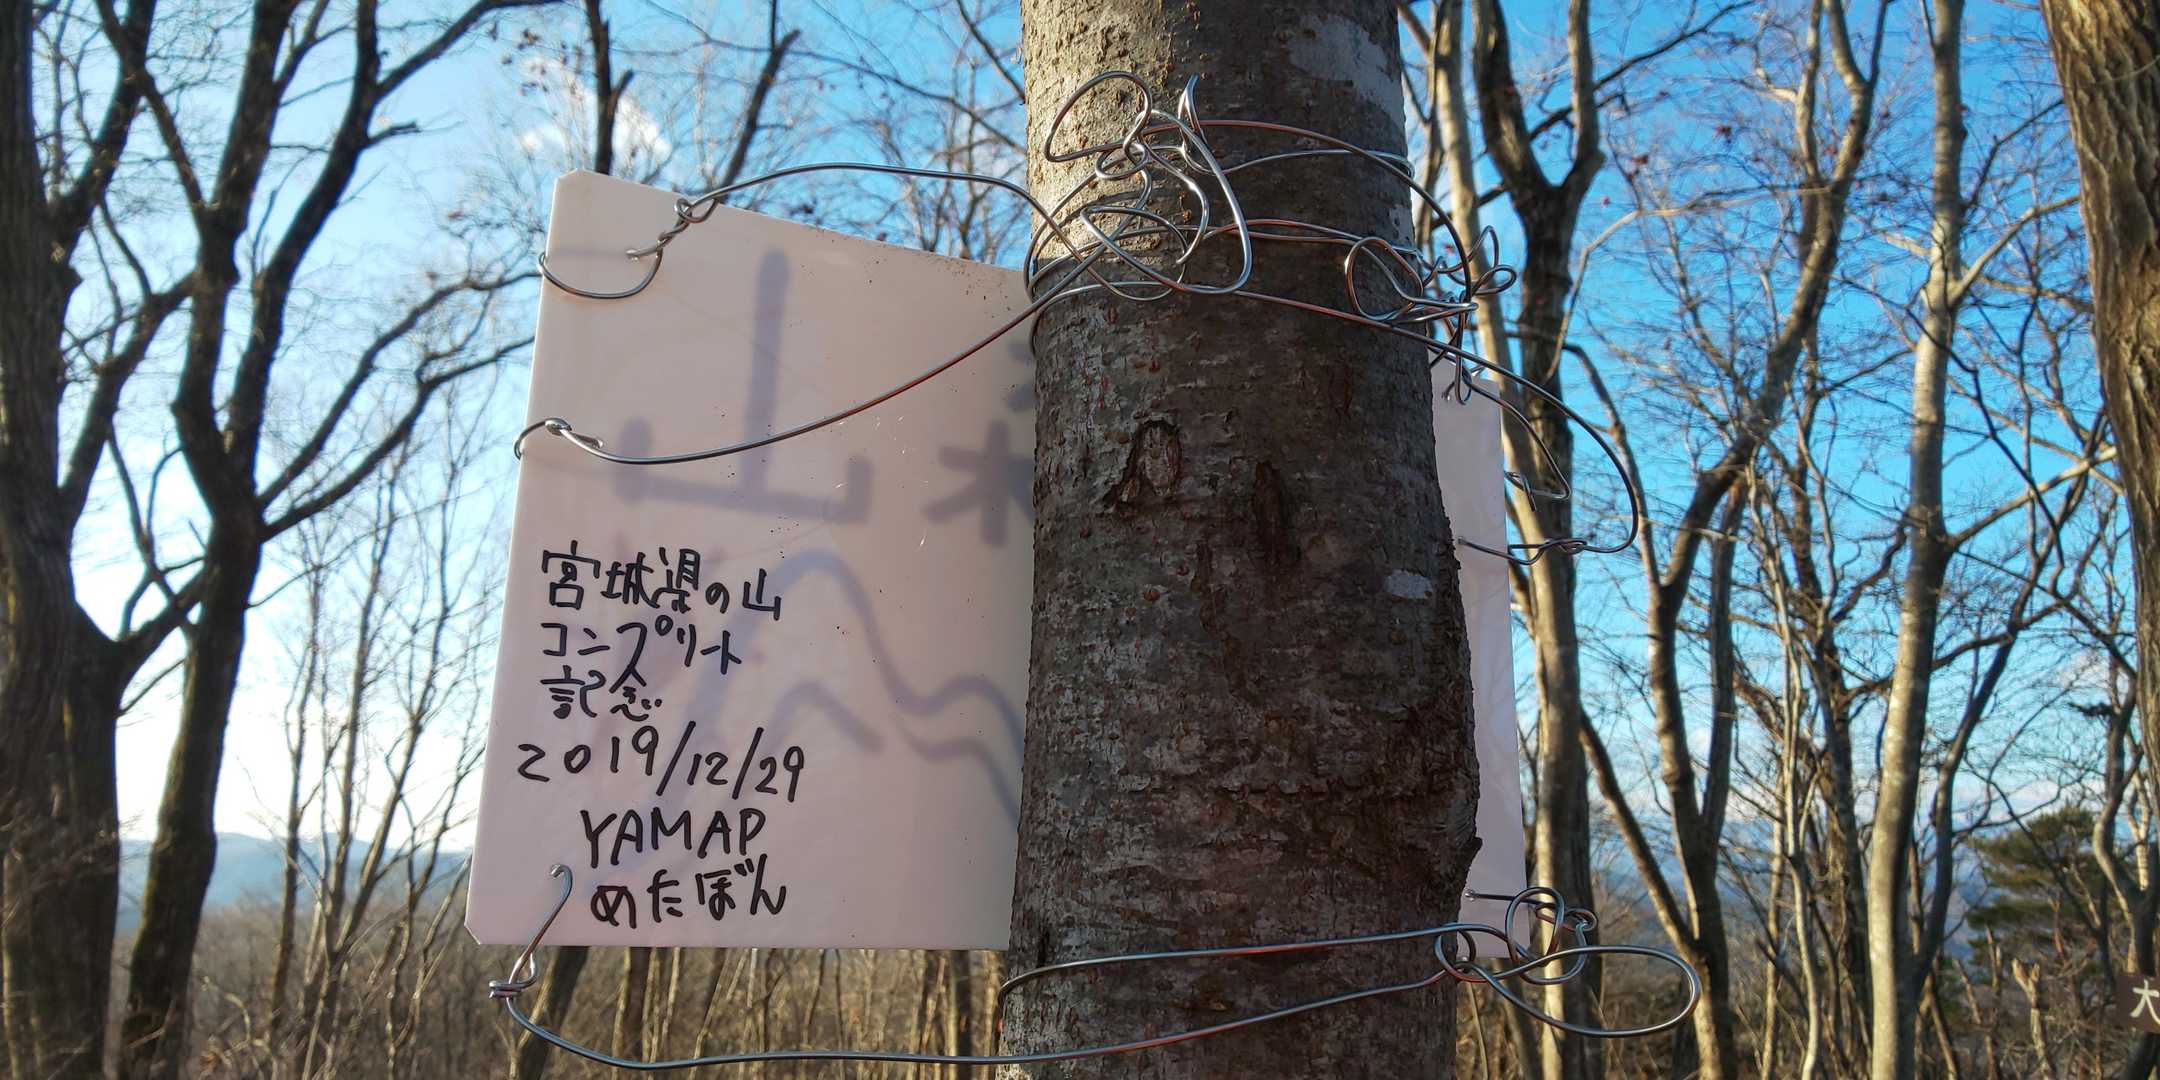 宮城県の山
コンプリート
記念
2019/12/29
YAMAP
めたぼん
山
大